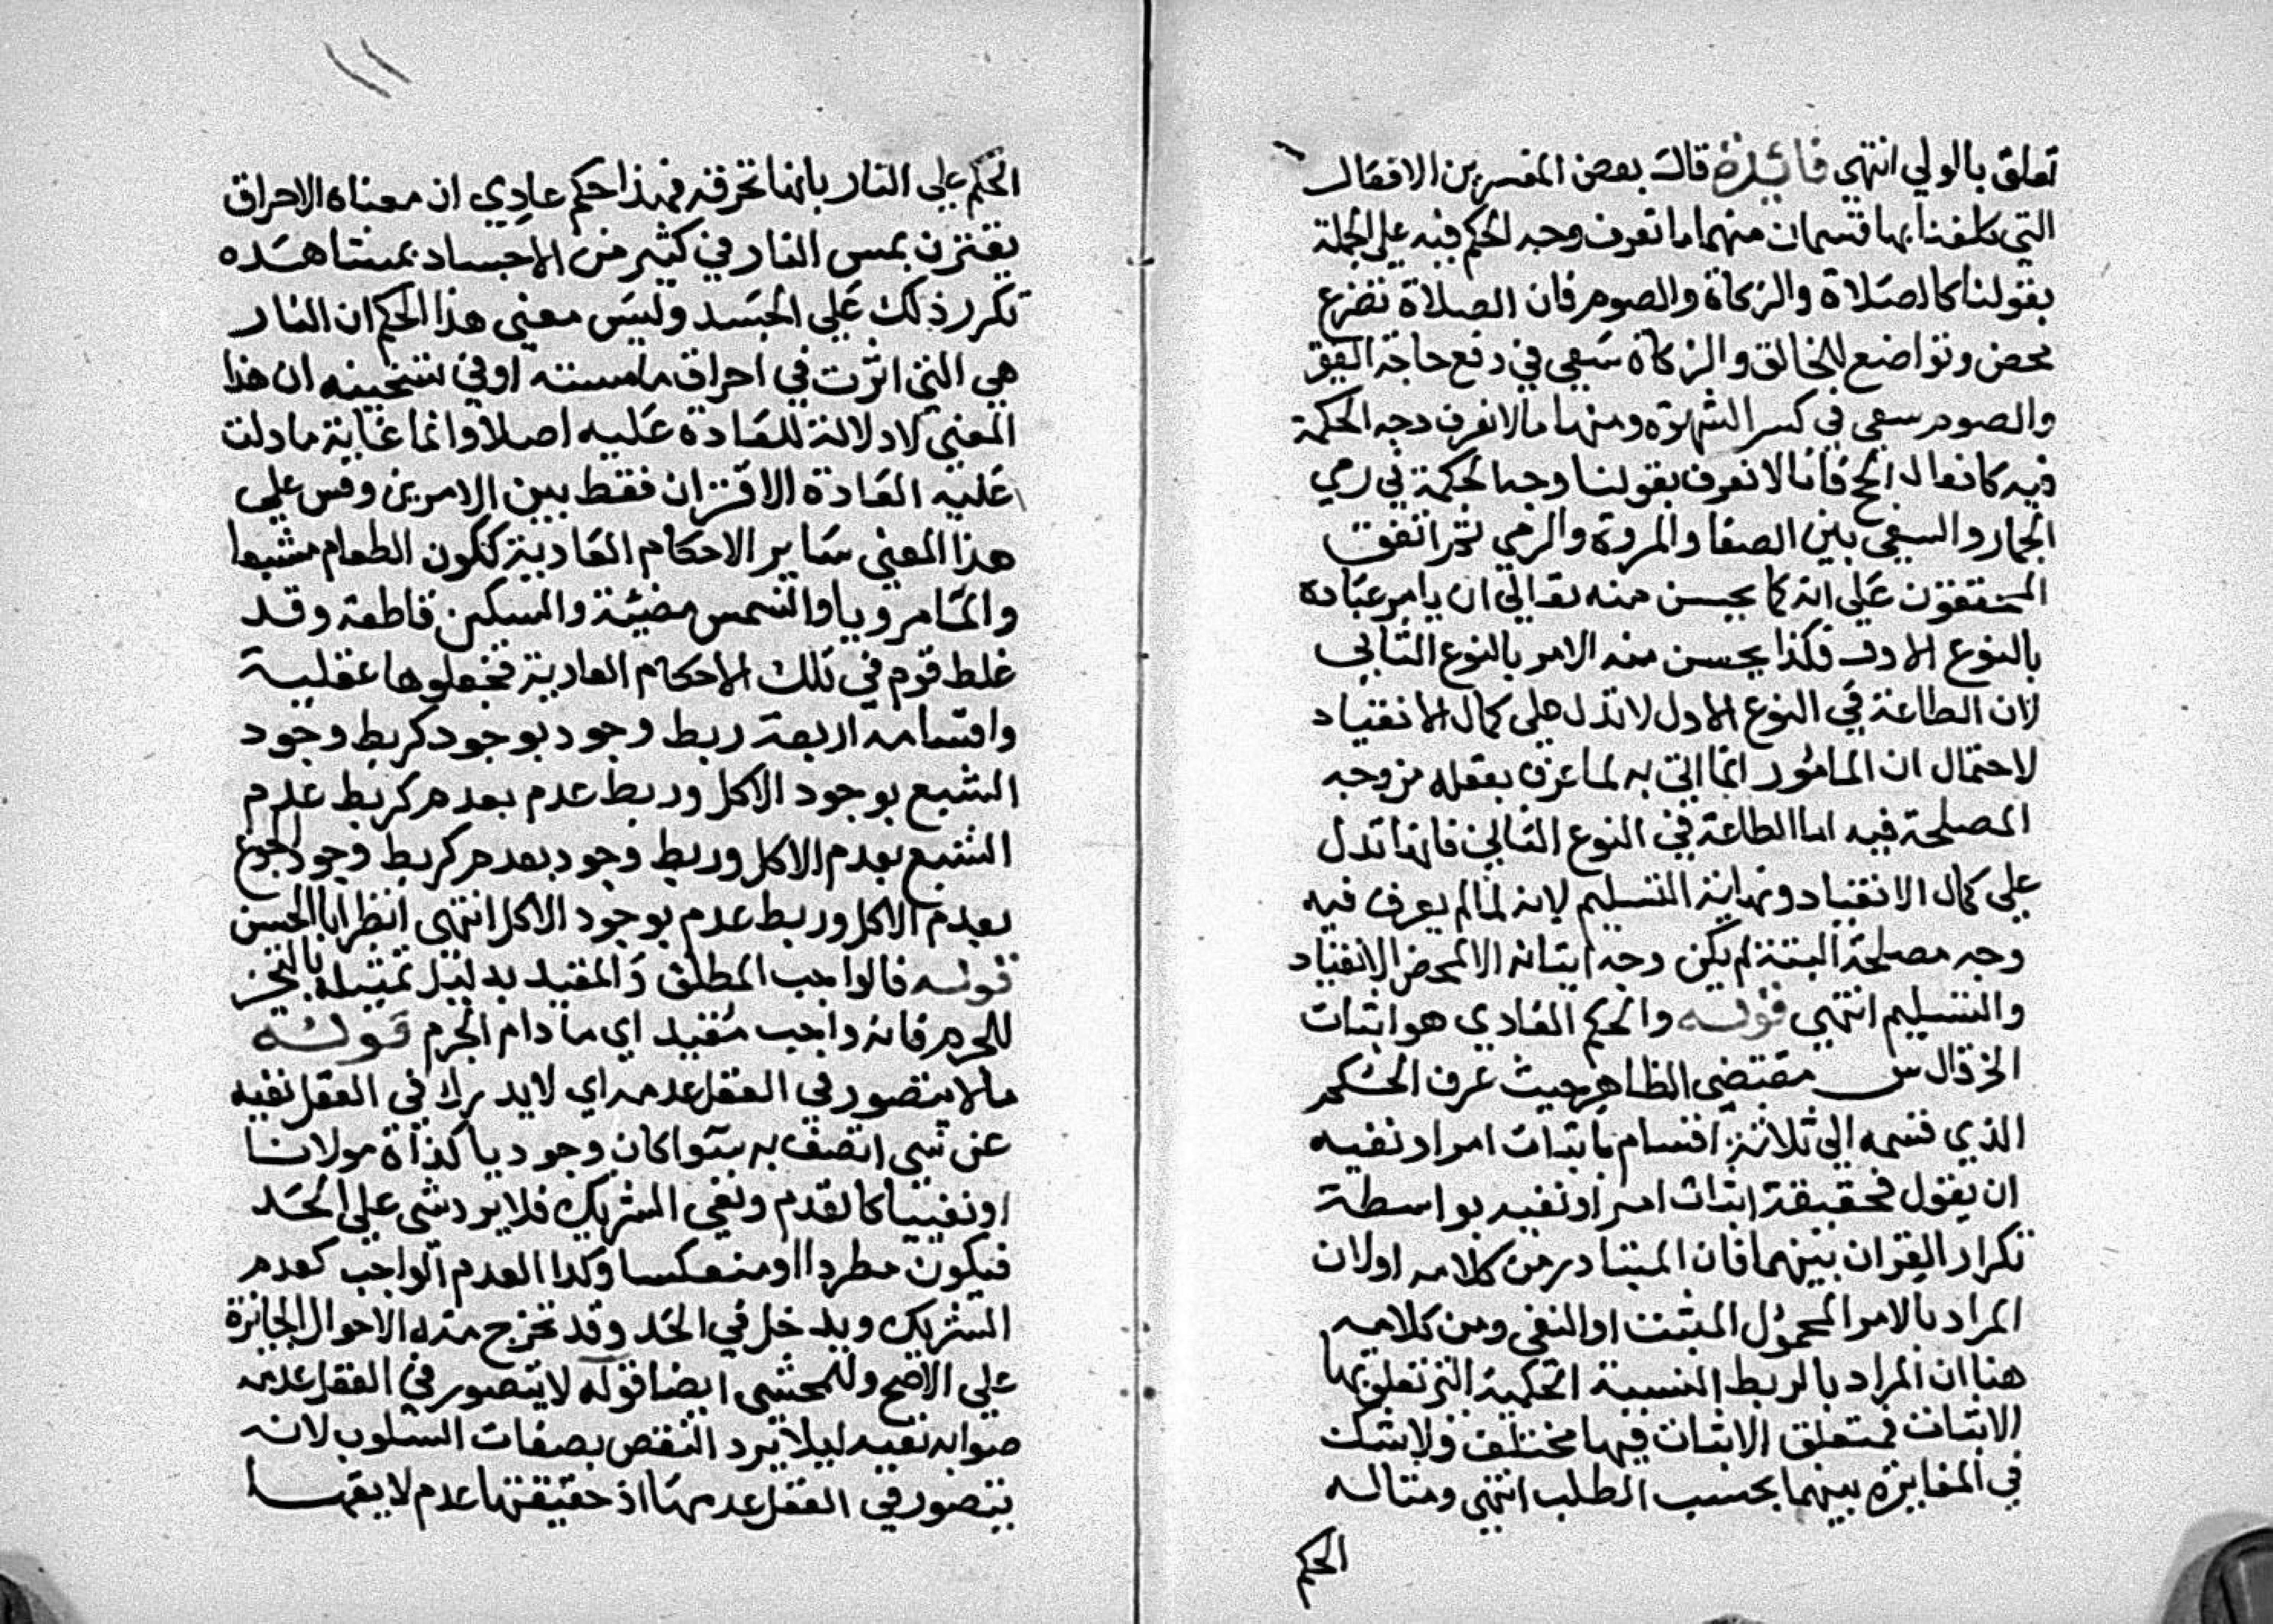 تعلق بالولي انتهي فائدة قال بعض المفسرين الافعال
التي كلفنا بها قسمان منهما ما نعرف وجه الحكم فيه علي الجملة
بقولنا كالصلاة والزكاة والصوم فان الصلاة تضرع
محض وتواضع للخالق والزكاة سعي في دفع حاجة الفقر
والصوم سعي في كسر الشهوة ومنها ما لا نعرف وجه الحكمة
فيه كافعال الحج فانا لا نعرف بقولنا وجه الحكمة في رمي
الجمار والسعي بين الصفا والمروة والرمي ثم اتفق
المحققون علي انه كما يحسن منه تعالي ان يامر عباده
بالنوع الاول فكذا يحسن منه الامر بالنوع الثاني
لان الطاعة في النوع الاول لا تدل علي كمال الانقياد
لاحتمال ان المامور انما اتي به لما عرف بعقله من وجه
المصلحة فيه اما الطاعة في النوع الثاني فانها تدل
علي كمال الانقياد ونهاية التسليم لانه لما لم يعرف فيه
وجه مصلحة البتة لم يكن وجه اتيانه الا لمحض الانقياد
والتسليم انتهي قوله والحكم العادي هو اثبات
الخ قال س مقتضي الظاهر حيث عرف الحكم
الذي قسمه الي ثلاثة اقسام باثبات امر او نفيه
ان يقول فحقيقة اثبات امر او نفيه بواسطة
تكرار القران بينهما فان المتبادر من كلامه اولا ان
المراد بالامر المحمول المثبت او النفي ومن كلامه
هنا ان المراد بالربط النسبة الحكمية التي تعلق بها
الاثبات فمتعلق الاثبات فيها مختلف ولا شك
في المغايرة بينهما بحسب الطلب انتهي ومثاله
الحكم
الحكم علي النار بانها تحرقه فهذا حكم عادي ان معناه الاحراق
يقترن بمس النار في كثير من الاجساد بمشاهده
تكرر ذلك علي الجسد وليس معني هذا الحكم ان النار
هي التي اثرت في احراق ما مسته او في تسخينه ان هذا
المعني لا دلالة للعادة عليه اصلا وانما غاية ما دلت
عليه العادة الاقتران فقط بين الامرين وقس علي
هذا المعني ساير الاحكام العادية ككون الطعام مشبعا
والما مرويا والشمس مضيئة والسكين قاطعة وقد
غلط قوم في تلك الاحكام العادية فجعلوها عقلية
واقسامه اربعة ربط وجود بوجود كربط وجود
الشبع بوجود الاكل وربط عدم بعدم كربط عدم
الشبع بعدم الاكل وربط وجود بعدم كربط وجود الجوع
بعدم الاكل وربط عدم بوجود الاكل انتهي انظر ابا الحسن
قوله فالواجب المطلق والمقيد بدليل تمثيله بالتحيز
للجرم فانه واجب مقيد اي ما دام الجرم قوله
ما لا يتصور في العقل عدمه اي لا يدرك في العقل نفيه
عن شي اتصف به سوا كان وجوديا كذاة مولانا
او نفييا كالقدم ونفي الشريك فلا يرد شي علي الحد
فيكون مطردا او منعكسا وكذا العدم الواجب كعدم
الشريك ويدخل في الحد وقد تخرج منه الاحوال الجائزة
علي الاصح وللمحشي ايضا قوله لا يتصور في العقل عدمه
صوابه نفيه ليلا يرد النقض بصفات السلوب لانه
يتصور في العقل عدمها اذ حقيقتها عدم لا يقها